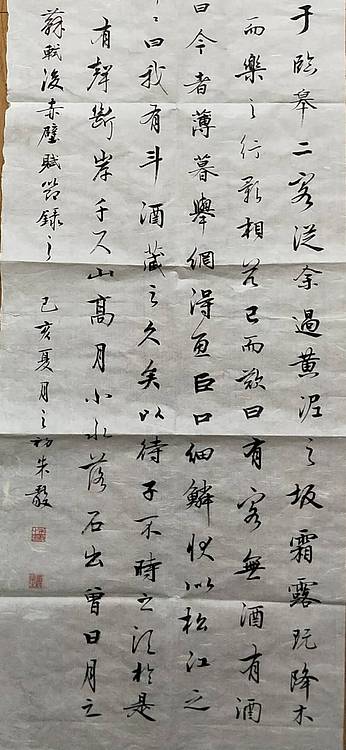 于臨皋二客從余過黃泥之坂霜露既降木
而樂之行歌相答已而歎曰有客無酒有酒
曰今者薄暮舉網得魚巨口細鱗狀似松江之
曰我有斗酒藏之久矣以待子不時之須於是
有聲斷岸千尺山高月小水落石出曾日月之
蘇軾後赤壁賦節錄之 己亥夏月之初朱